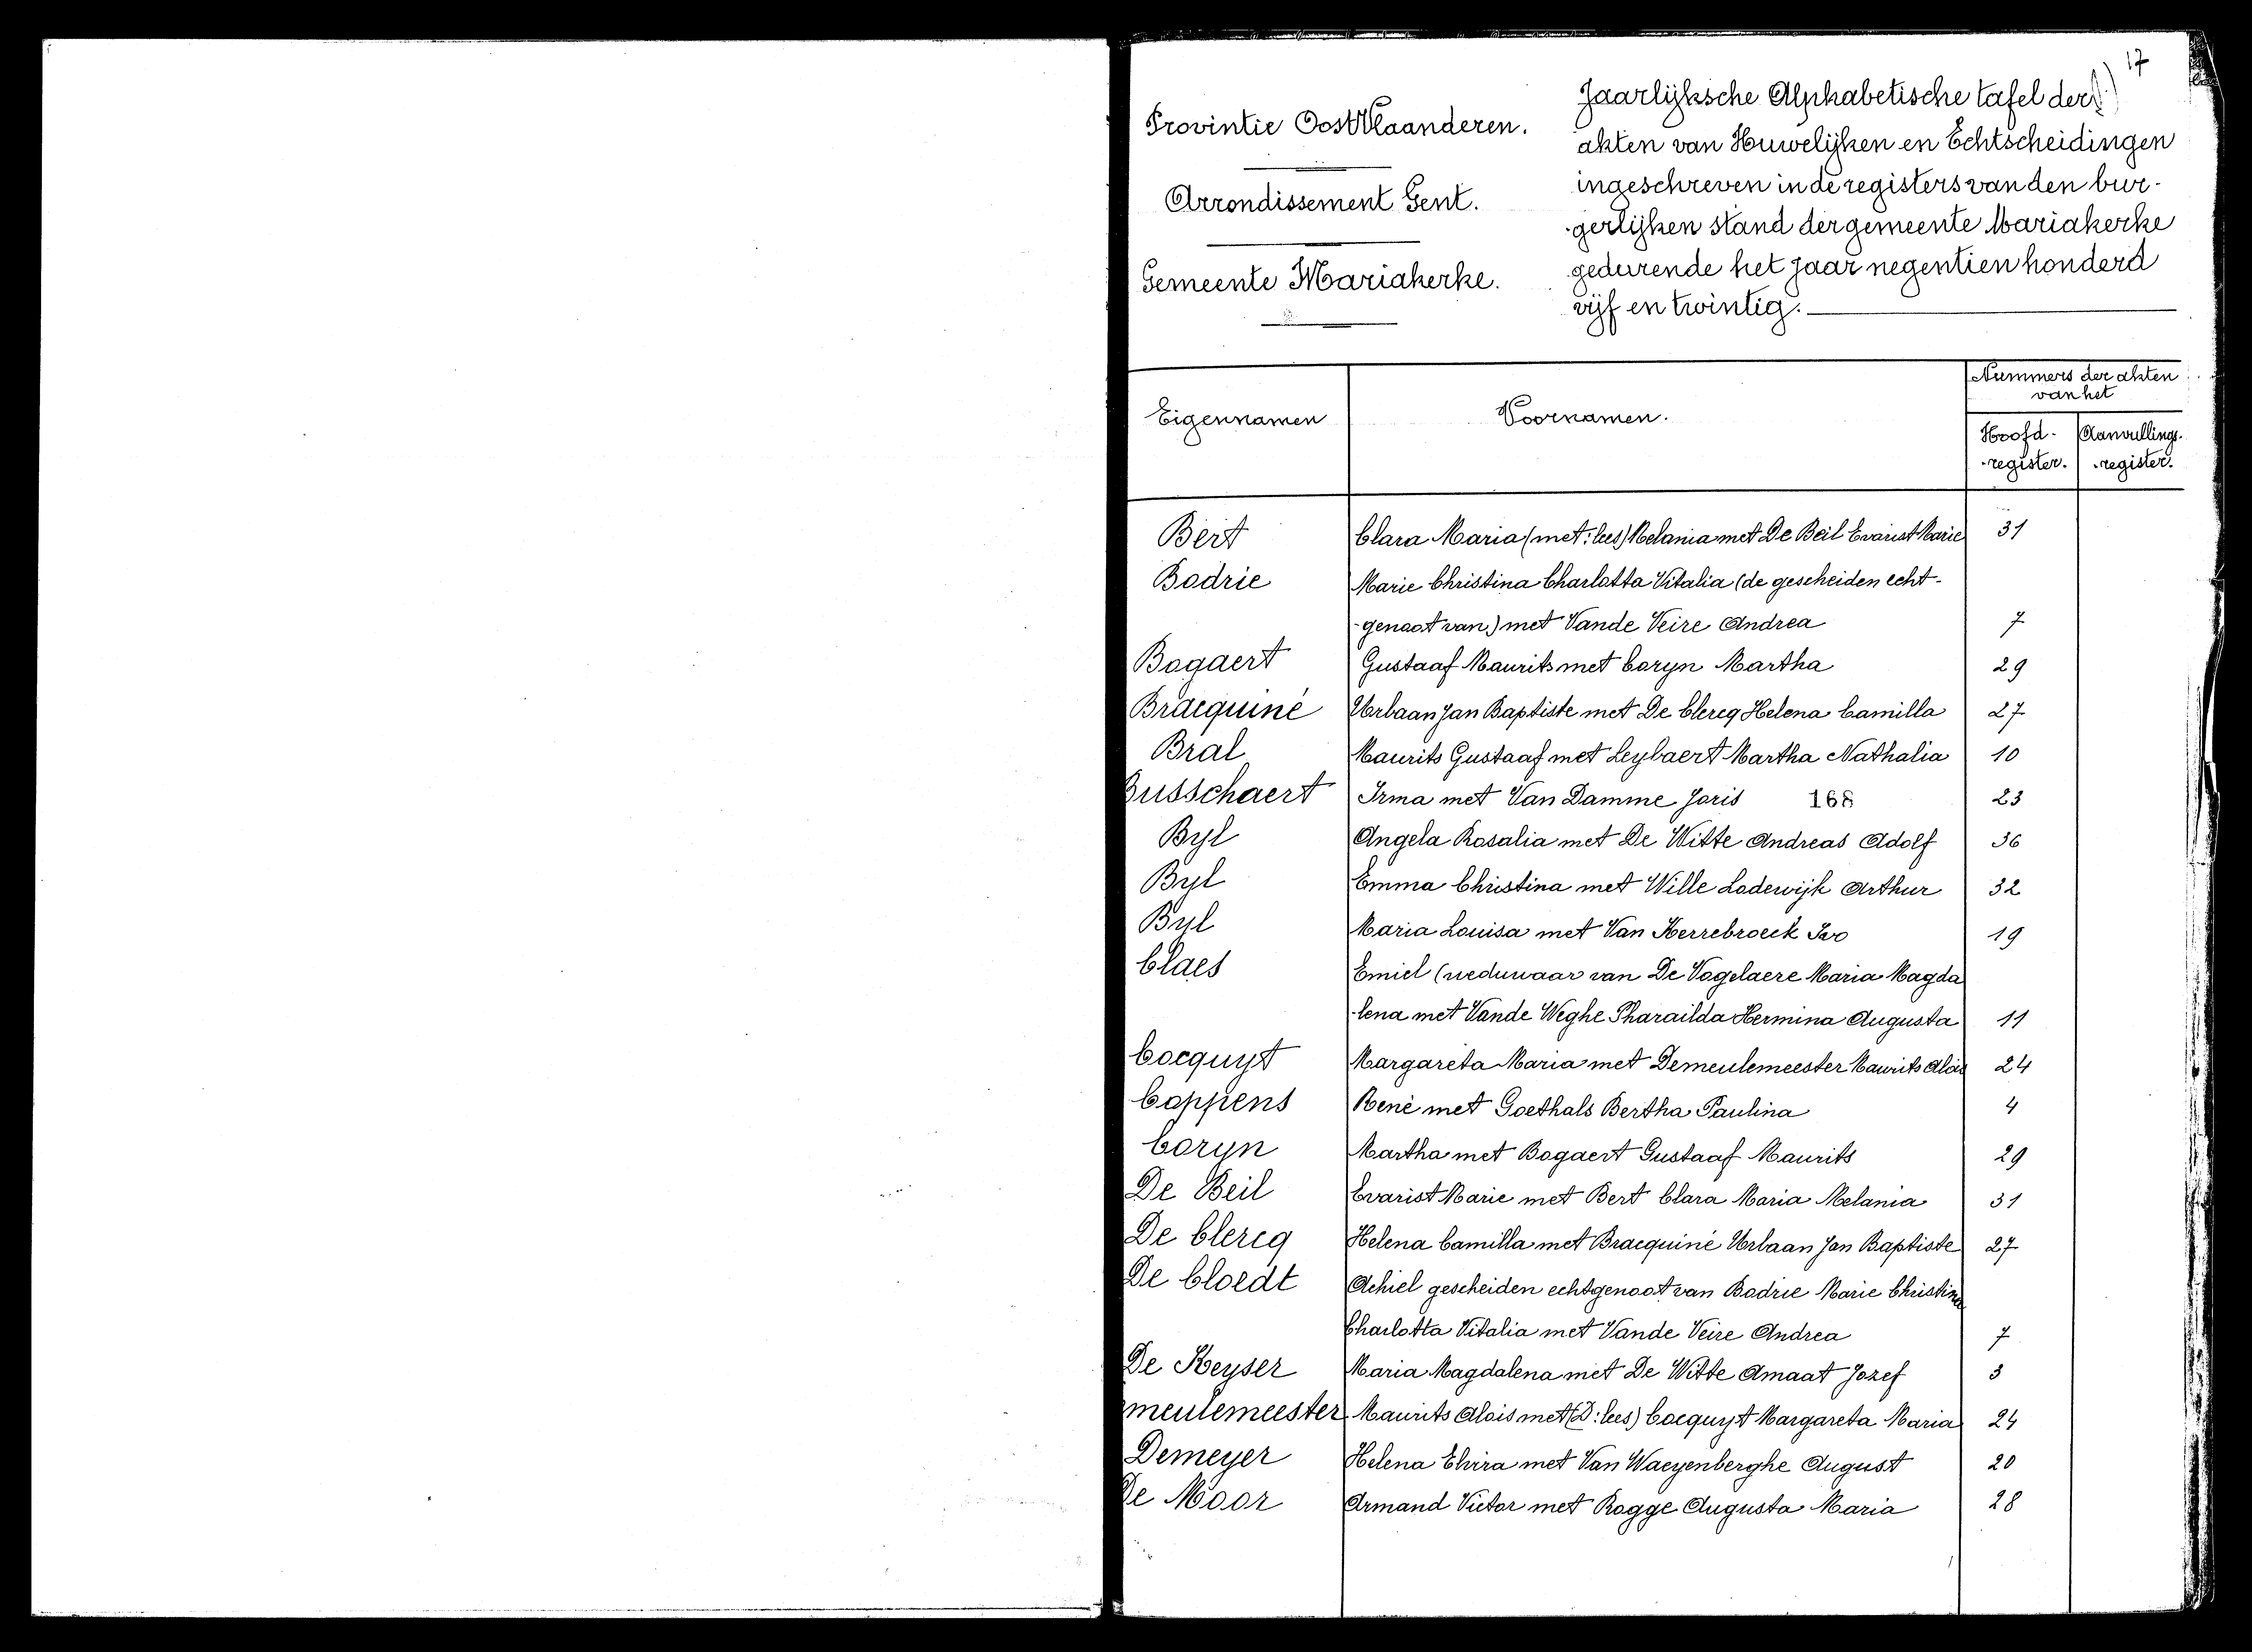 17
Provintie OostVlaanderen.
Arrondissement Gent.
Gemeente Mariakerke.
Jaarlijksche Alphabetische tafel der
akten van Huwelijken en Echtscheidingen
ingeschreven in de registers van den bur-
gerlijken stand der gemeente Mariakerke
gedurende het jaar negentien honderd
vijf en twintig.
Eigennamen Voornamen. Nummers der akten
van het
Hoofd- Aanvullings-
register. register.
Bert Clara Maria (met: lees) Melania met De Beil Evarist Marie 31
Bodrie Marie Christina Charlotta Vitalia (de gescheiden echt-
genoot van) met Vande Veire Andrea 7
Bogaert Gustaaf Maurits met Coryn Martha 29
Bracquiné Urbaan Jan Baptiste met De Clercq Helena Camilla 27
Bral Maurits Gustaaf met Leybaert Martha Nathalia 10
Busschaert Irma met Van Damme Joris 168 23
Byl Angela Rosalia met De Witte Andreas Adolf 36
Byl Emma Christina met Wille Lodewijk Arthur 32
Byl Maria Louisa met Van Kerrebroeck Ivo 19
Claes Emiel (weduwaar van De Vogelaere Maria Magda
lena met Vande Weghe Pharailda Hermina Augusta 11
Cocquyt Margareta Maria met Demeulemeester Maurits Alois 24
Coppens René met Goethals Bertha Paulina 4
Coryn Martha met Bogaert Gustaaf Maurits 29
De Beil Evarist Marie met Bert Clara Maria Melania 31
De Clercq Helena Camilla met Bracquiné Urbaan Jan Baptiste 27
De Cloedt Achiel gescheiden echtgenoot van Bodrie Marie Christina
Charlotta Vitalia met Vande Veire Andrea 7
De Keyser Maria Magdalena met De Witte Amaat Jozef 3
meulemeester Maurits Alois met (D: lees) Cocquyt Margareta Maria 24
Demeyer Helena Elvira met Van Waeyenberghe August 20
De Moor Armand Victor met Rogge Augusta Maria 28